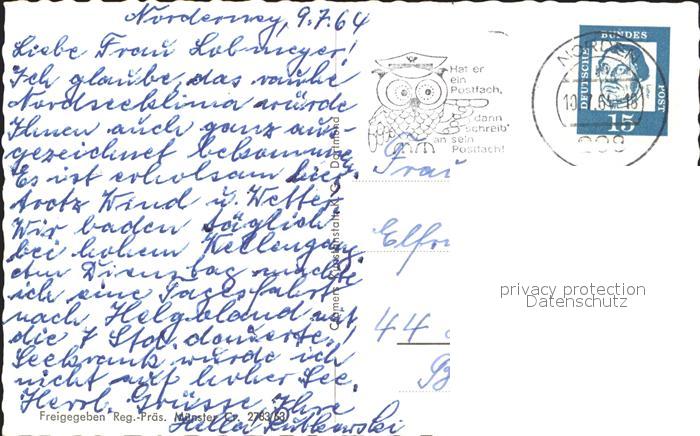 Norderney, 9.7.64
Liebe Frau Lobmeyer!
Ich glaube, das rauhe
Nordseeklima würde
Ihnen auch ganz aus-
gezeichnet bekommen.
Es ist erholsam hier
trotz Wind u. Wetter.
Wir baden täglich
bei hohem Wellengang.
Am Dienstag machte
ich eine Tagesfahrt
nach Helgoland mit
die 7 Std. dauerte,
Seekrank wurde ich
nicht auf hoher See.
Herzl. Grüsse Ihre
Hella
Freigegeben Reg.-Präs. Münster Cr. 2783/63
Cramers Kunstanstalt KG., Dortmund
Hat er
ein
Postfach,
dann
"schreib"
an sein
Postfach!
NORDEN
10.7.64-18
DEUTSCHE
BUNDES
POST
15
Frau
Elfr
44
privacy protection
Datenschutz